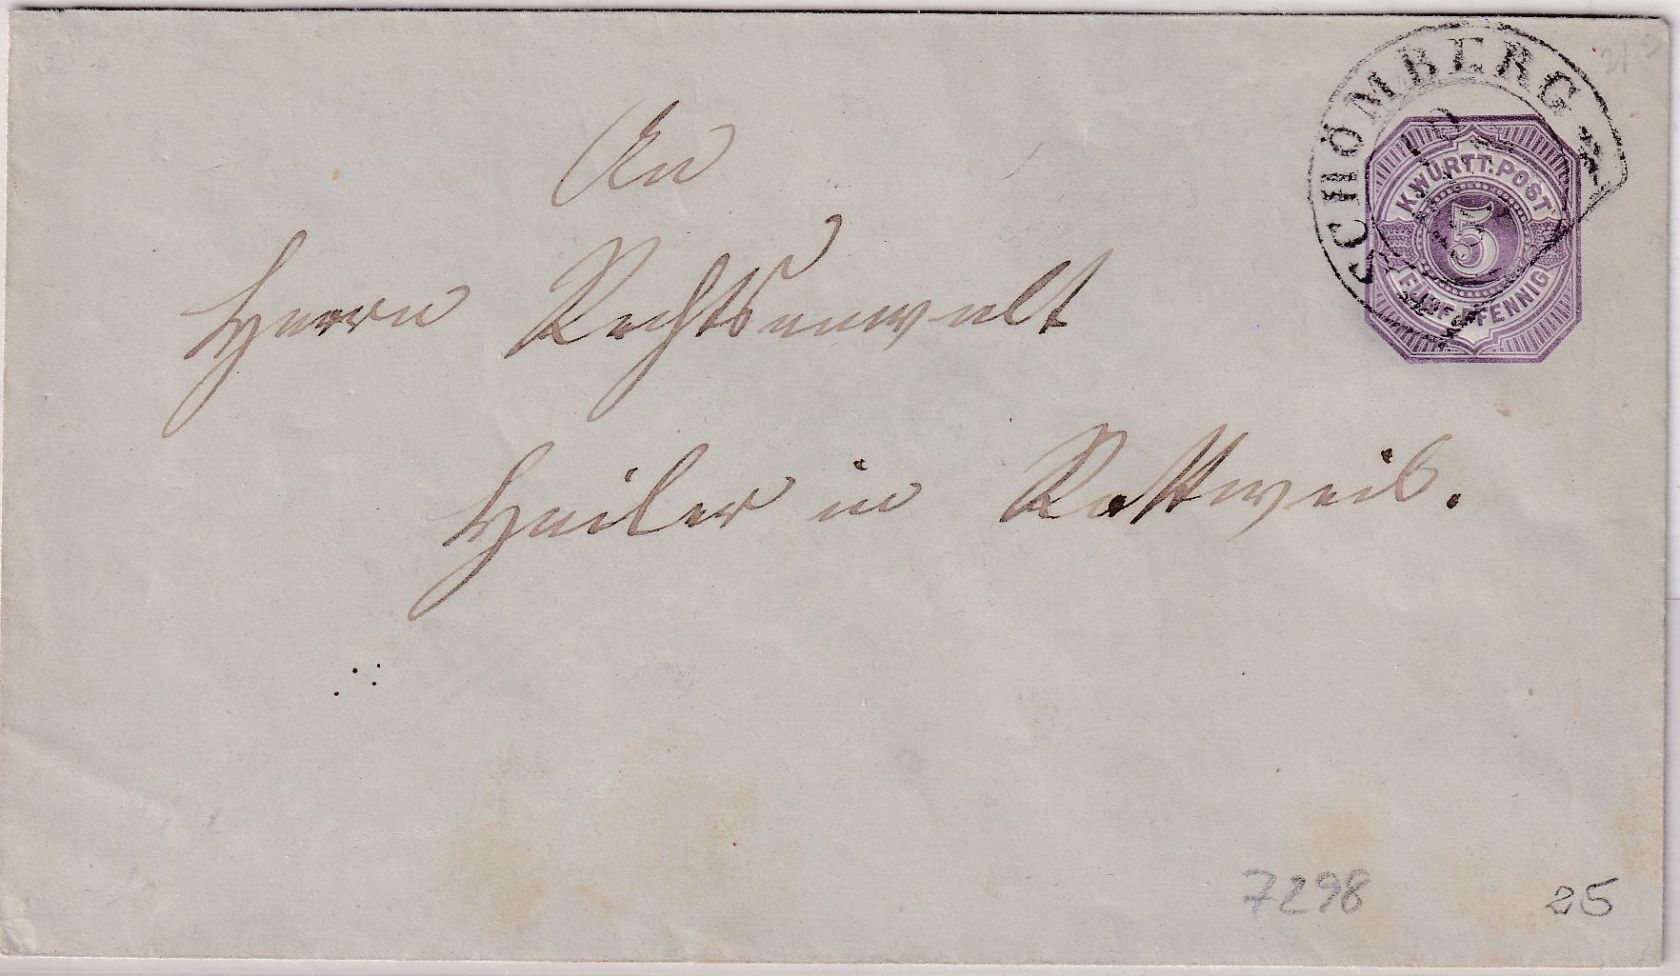 SCHÖMBERG
K.WÜRTT.POST
5
FÜNF PFENNIG
An
Herrn Rechtsanwalt
Hailer in Rottweil.
7298
25